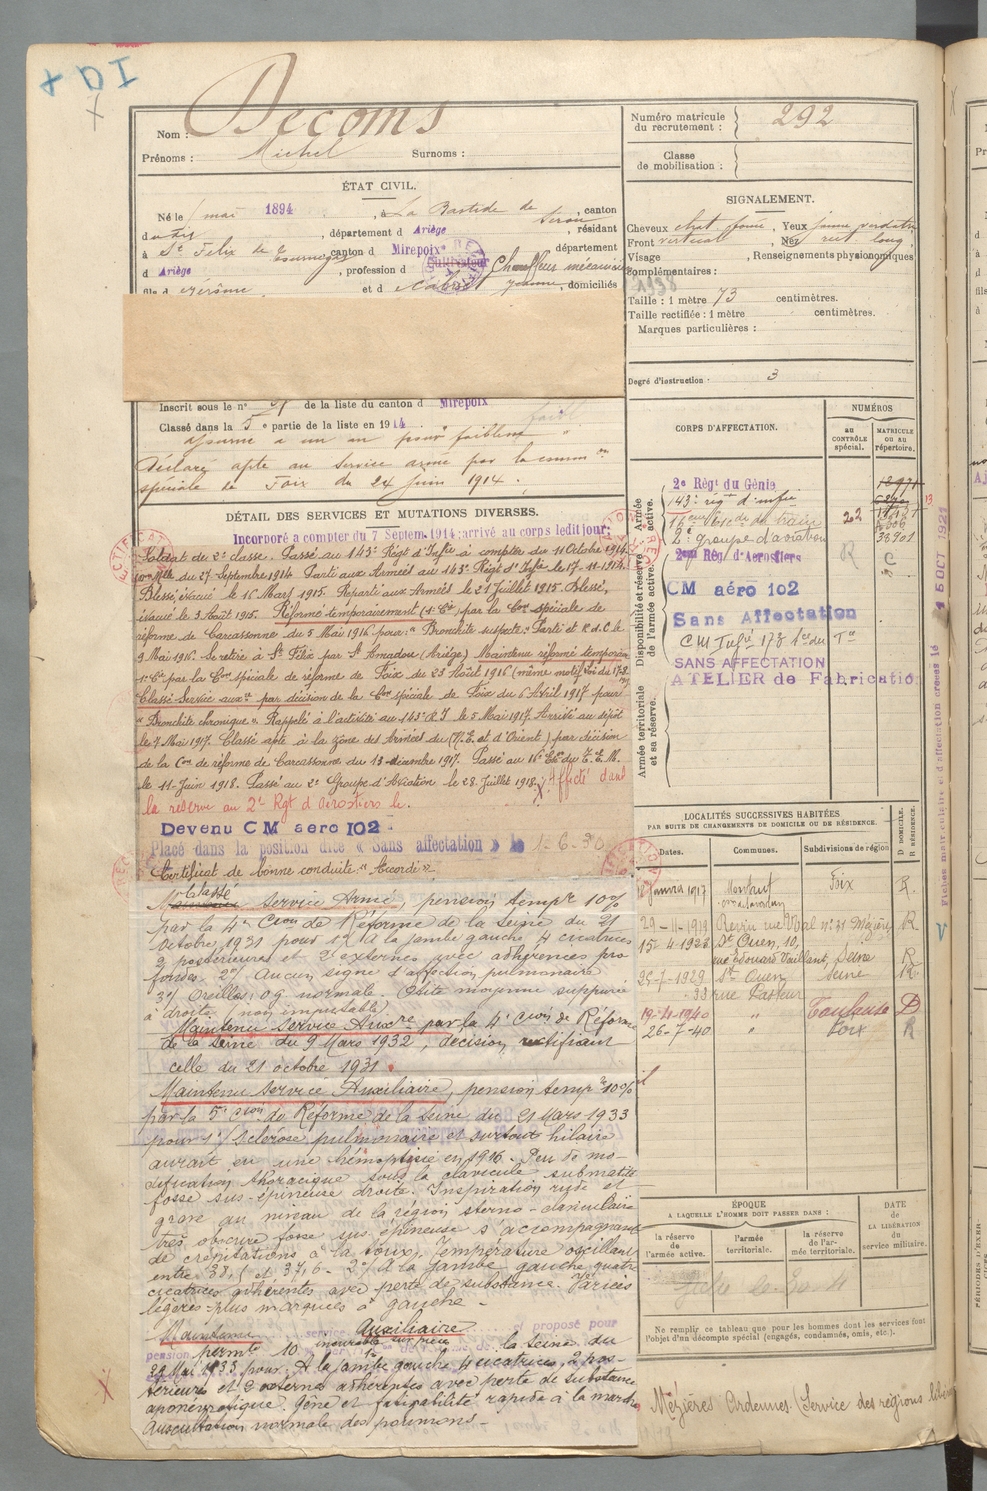 I D A
Nom : Decoms
Prénoms : Michel Surnoms :
Numéro matricule du recrutement : 292
Classe de mobilisation :
ÉTAT CIVIL.
Né le 1 mai 1894, à La Bastide de Sérou, canton
d udit, département d Ariège, résidant
à St Felix de Tournegat canton d Mirepoix département
d Ariège, profession d Cultivateur Chauffeur mécanicien
fils d et d domiciliés
SIGNALEMENT.
Cheveux chat. foncé, Yeux jaune verdâtre
Front vertical, Nez rect. long
Visage , Renseignements physionomiques
complémentaires :
1938
Taille : 1 mètre 73 centimètres.
Taille rectifiée : 1 mètre centimètres.
Marques particulières :
Degré d'instruction : 3
Inscrit sous le n° de la liste du canton d Mirepoix
Classé dans la 5e partie de la liste en 1914
Ajourné à un an pour faiblesse
Déclaré apte au service armé par la comm on
spéciale de Foix du 24 Juin 1914.
CORPS D'AFFECTATION.
NUMÉROS
au CONTRÔLE spécial.
MATRICULE ou au répertoire.
Armée active.
Disponibilité et réserve de l'armée active.
Armée territoriale et sa réserve.
2e Régt du Génie
143e régt d'infie
16eme Escon du train 22
2e groupe d'aviation
2eme Rég. d'Aerostiers R C
CM aéro 102
Sans Affectation
CM Infie 173
SANS AFFECTATION
ATELIER de Fabricatio
DÉTAIL DES SERVICES ET MUTATIONS DIVERSES.
Incorporé a compter du 7 Septem. 1914; arrivé au corps ledit jour;
Soldat de 2e classe. Passé au 143e Régt d'Infie à compter du 11 Octobre 1914
du 27 Septembre 1914. Parti aux Armées au 143e Régt d'Infie le 17-11-1914.
Blessé, évacué le 16 Mars 1915. Reparti aux Armées le 21 Juillet 1915. Blessé,
évacué le 3 Août 1915. Réformé temporairement (1e Cie par la Con spéciale de
réforme de Carcassonne du 5 Mai 1916 pour: "Bronchite suspecte". Parti et R.d.C. le
9 Mai 1916. Se retire à St Félix par St Amadou (Ariège) Maintenu réformé temporaire
1e Cie par la Con spéciale de réforme de Foix du 23 Août 1916 (même motif
Classé Service auxre par décision de la Con spéciale de Foix du 6 Avril 1917 pour
"Bronchite chronique". Rappelé à l'activité au 143e R.I. le 5 Mai 1917. Arrivé au dépôt
le 7 Mai 1917. Classé apte à la zône des Armées du (N.E. et d'Orient) par décision
de la Con de réforme de Carcassonne, du 13 décembre 1917. Passé au 16e Escon du T.E.M.
le 11 Juin 1918. Passé au 2e Groupe d'Aviation le 28 Juillet 1918. Affecté dans
la réserve au 2e Rgt d'aérostiers le.
Devenu CM aero 102.
Placé dans la position dite « Sans affectation » le 1-6-30
Certificat de bonne conduite: "Accordé"
Classé
service Armé, pension tempre 10%
par la 4e Cion de Réforme de la Seine du 21
Octobre 1931 pour 1°/ A la jambe gauche 4 cicatrices
2 postérieures et 2 externes avec adhérences pro
fondes. 2°/ Aucun signe d'affection pulmonaire
3°/ Oreilles, og normale. Otite moyenne suppurée
à droite non imputable)
Maintenu service Auxre par la 4e Cion de Réforme
de la Seine du 9 Mars 1932, décision rectifiant
celle du 21 octobre 1931.
Maintenu service Auxiliaire, pension tempre 10%
par la 5e Cion de Réforme de la Seine du 21 Mars 1933
pour 1°/ Sclérose pulmonaire et surtout hilaire
aurait eu une hémoptysie en 1916. Peu de mo-
dification thoracique sous la clavicule submatité
fosse sus-épineuse droite. Inspiration rude et
grave au niveau de la région sterno-claviculaire
très obscure fosse sus épineuse s'accompagnant
de crépitations à la toux. Température oscillant
entre 38,5 et 37,6 - 2° A la jambe gauche quatre
cicatrices adhérentes avec perte de substance. Varices
légères plus marquées à gauche -
Maintenu service Auxiliaire et proposé pour
pension permte 10 incurable la Seine du
29 Mai 1933 pour: A la jambe gauche 4 cicatrices, 2 pos-
térieures et 2 externes adhérentes avec perte de substance
aponévrotique. Gêne et fatigabilité rapide à la marche
Auscultation normale des poumons -
LOCALITÉS SUCCESSIVES HABITÉES
PAR SUITE DE CHANGEMENTS DE DOMICILE OU DE RÉSIDENCE.
Dates. Communes. Subdivisions de région D. DOMICILE. R. RÉSIDENCE.
Janvier 1917 Montaut Foix R.
29-11-1919 Revin rue Mézières R
15-4-1928 St Ouen, 10,
rue Edouard Vaillant, Seine R
25-7-1929 St Ouen Seine R
33 rue Pasteur
19-4-1940 " Toulouse D
26-7-40 " Foix R
ÉPOQUE
A LAQUELLE L'HOMME DOIT PASSER DANS :
la réserve de l'armée active.
l'armée territoriale.
la réserve de l'armée territoriale.
DATE de LA LIBÉRATION du service militaire.
Ne remplir ce tableau que pour les hommes dont les services font
l'objet d'un décompte spécial (engagés, condamnés, omis, etc.).
Mézières Ardennes (Service des régions
15 OCT 1921